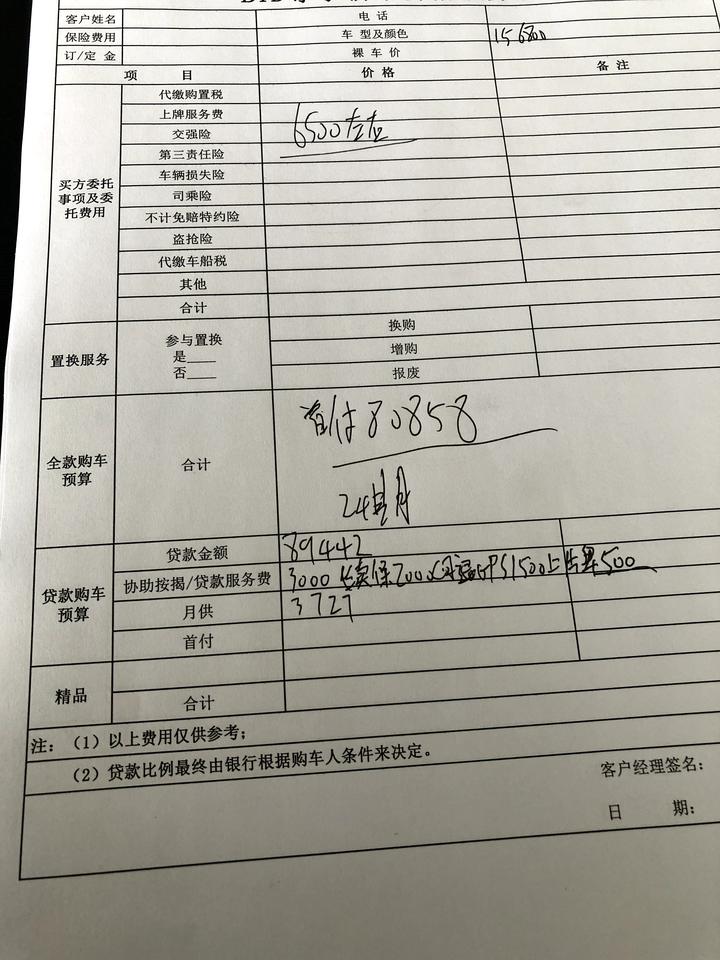 客户姓名 电话
保险费用 车型及颜色 156800
订/定金 裸车价
项目 价格 备注
买方委托事项及委托费用
代缴购置税
上牌服务费
交强险 6500左右
第三责任险
车辆损失险
司乘险
不计免赔特约险
盗抢险
代缴车船税
其他
合计
置换服务 参与置换 是____ 否____
换购
增购
报废
全款购车预算 合计 首付80858
24个月
贷款购车预算
贷款金额 89442
协助按揭/贷款服务费 3000 续保2000 GPS1500上牌500
月供 3727
首付
精品
合计
注:(1)以上费用仅供参考;
(2)贷款比例最终由银行根据购车人条件来决定。
客户经理签名:
日期: